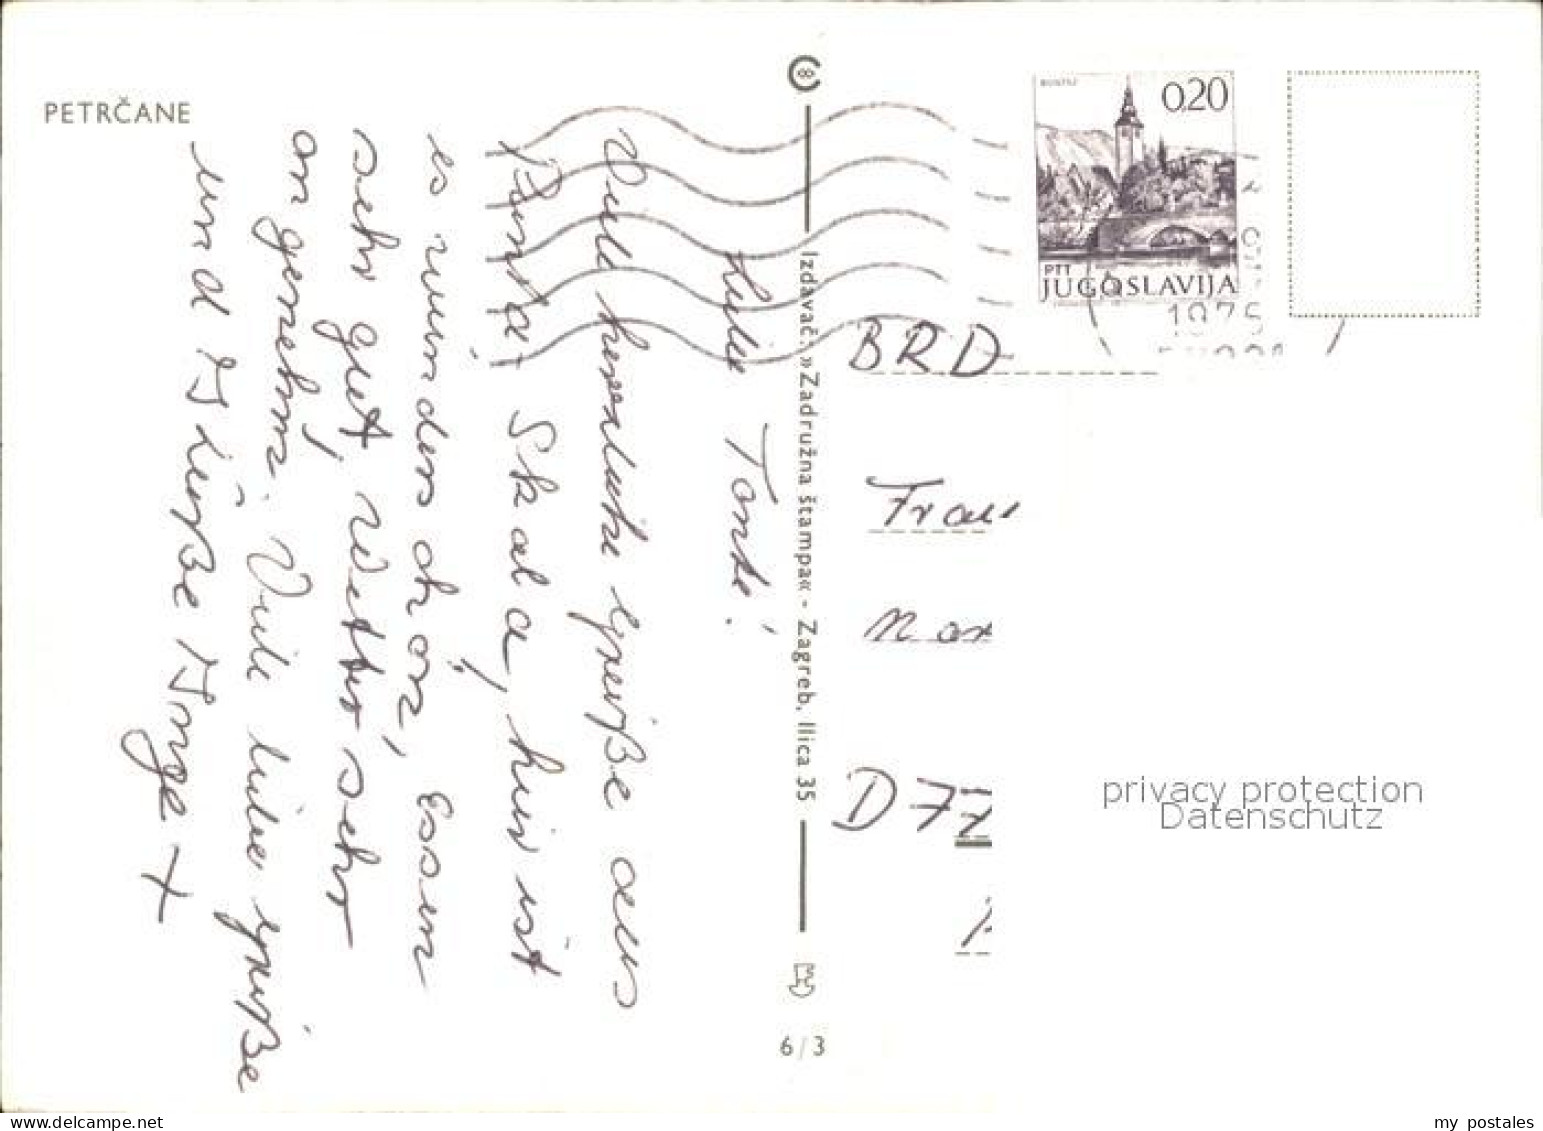 PETRČANE
Liebe Tante!
Viele herzliche Grüße aus
Punta Skala, hier ist
es wunderschön, Essen
sehr gut, Wetter sehr
angenehm. Viele liebe Grüße
und Küße Inge +
Izdavač: »Zadružna štampa« - Zagreb, Ilica 35
6/3
0,20
PTT
JUGOSLAVIJA
BRD
Frau
D 7
privacy protection
Datenschutz
my postales